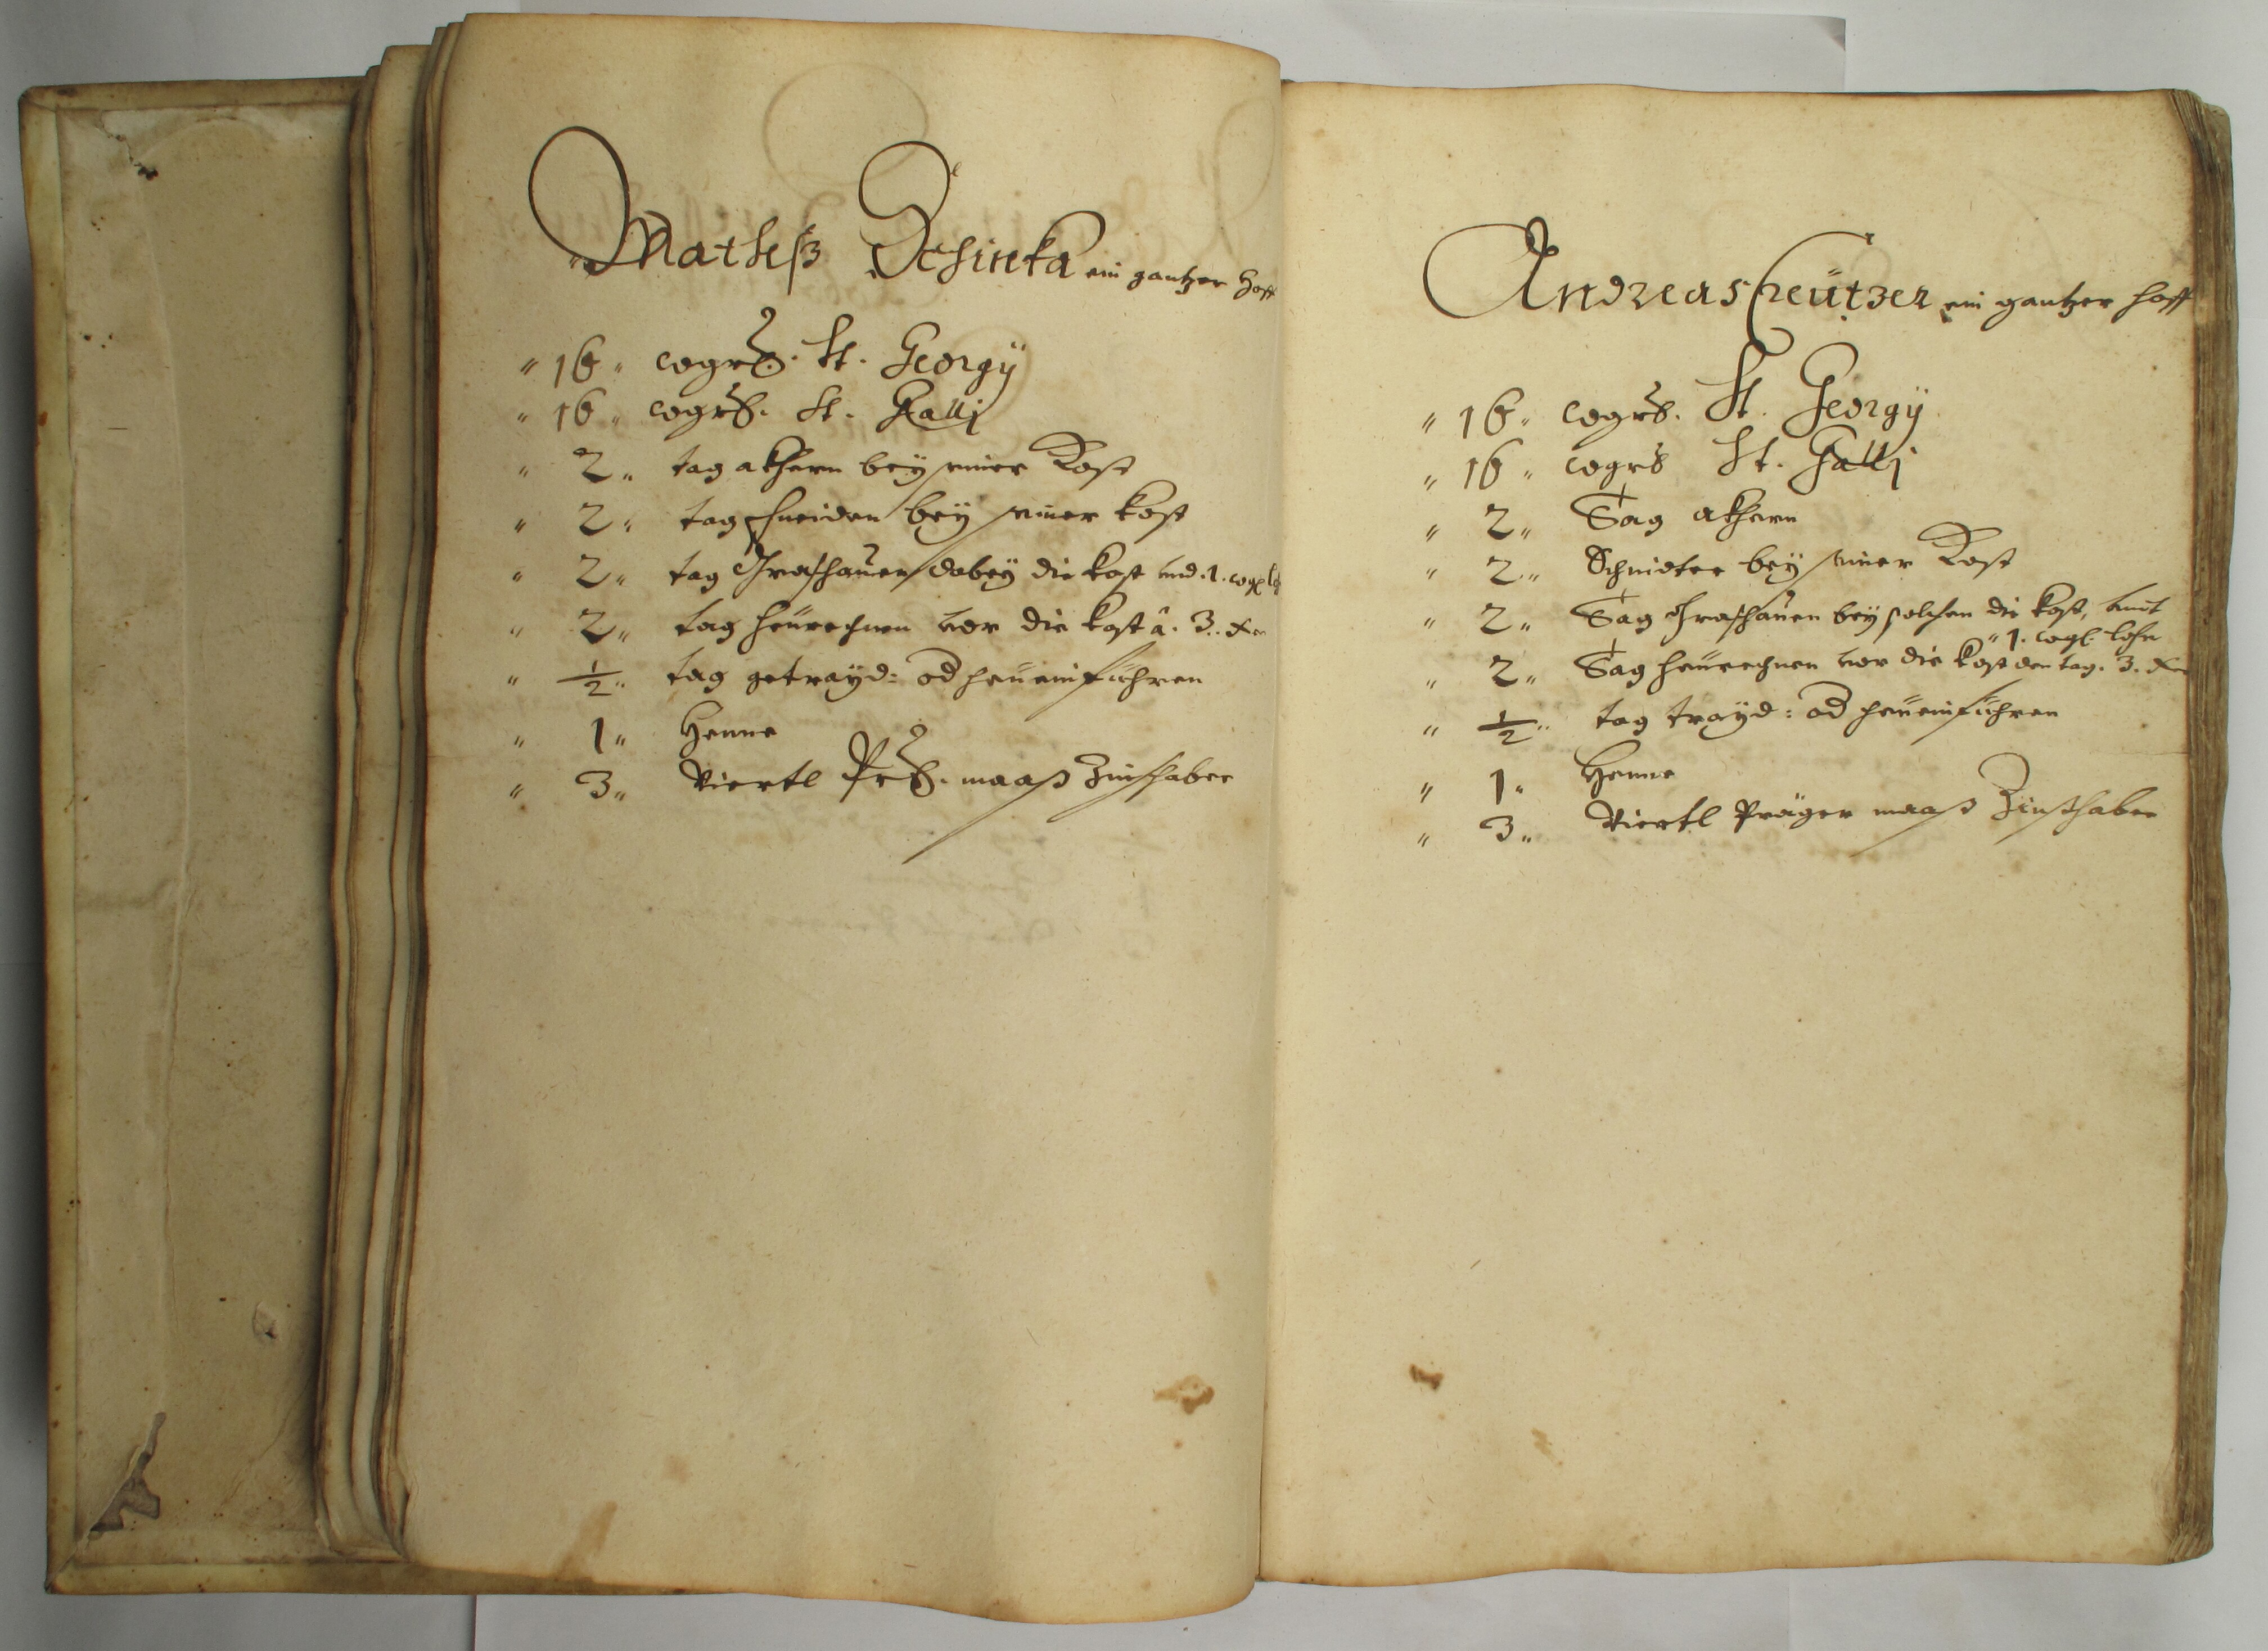 Matheß Tschinka ein gantzer Hoff
" 16 " wgrß. St. Georgÿ
" 16 " wgrß. St. Galli
" 2 " tag akhern beÿ seiner Kost
" 2 " tag schneiden beÿ seiner kost
" 2 " tag Graßhauen dabeÿ die kost und .1. wgl
" 2 " tag heurechnen vor die kost â. 3. xr
" ½ " tag getrayd: od heueinführen
" 1 " Henne
" 3 " Viertl Prß. maaß Zinßhaber
Andreas Creützer ein gantzer hoff
" 16 " wgrß. St. Georgÿ
" 16 " wgrß St. Galli
" 2 " Tag akhern
" 2 " Schnidter beÿ seiner Kost
" 2 " Tag Graßhauen beÿ solchen die kost, unnd
" 1. wgl. lohn
" 2 " Tag heurechnen vor die kost den tag. 3. xr
" ½ " tag traÿd: od heueinführen
" 1 " Henne
" 3 " Viertl Präger maaß Zinßhaber